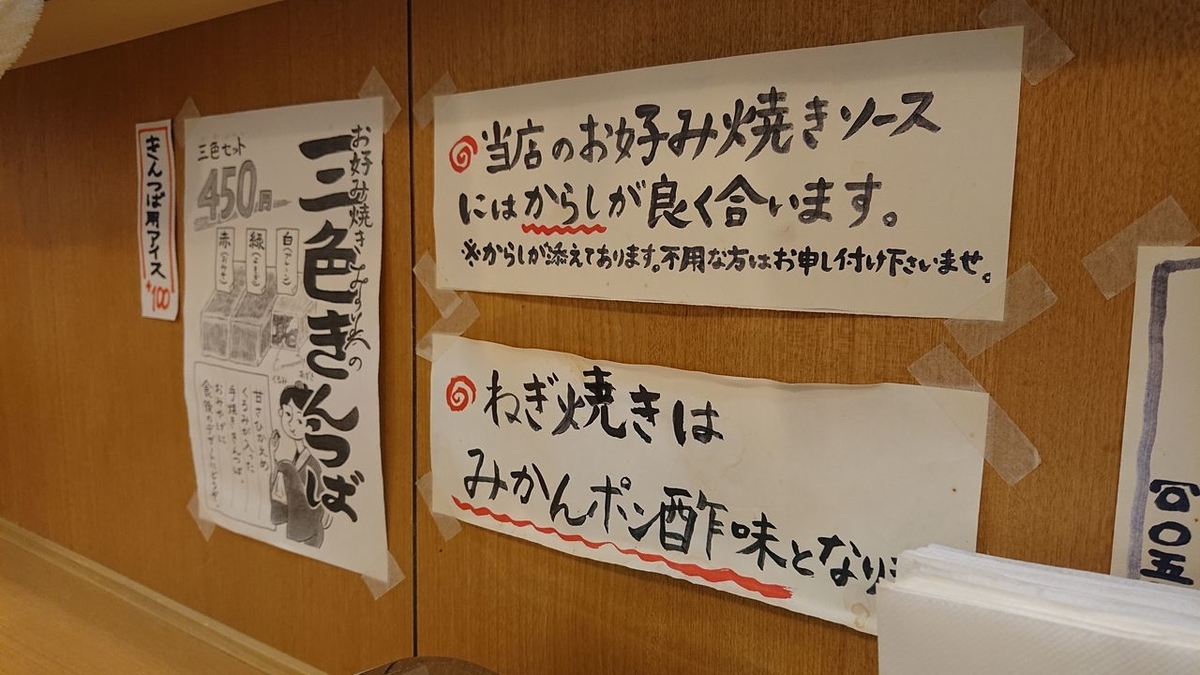 きんつば用アイス
+100
お好み焼き
の
三色きんつば
三色セット
450円
赤
緑
白(プレーン)
くるみ
あずき
甘さひかえめ
くるみが入った
手焼ききんつば。
おみやげに
食後のデザートにどうぞ。
当店のお好み焼きソース
にはからしが良く合います。
※からしが添えてあります。不用な方はお申し付け下さいませ。
ねぎ焼きは
みかんポン酢味となり
〇〇五